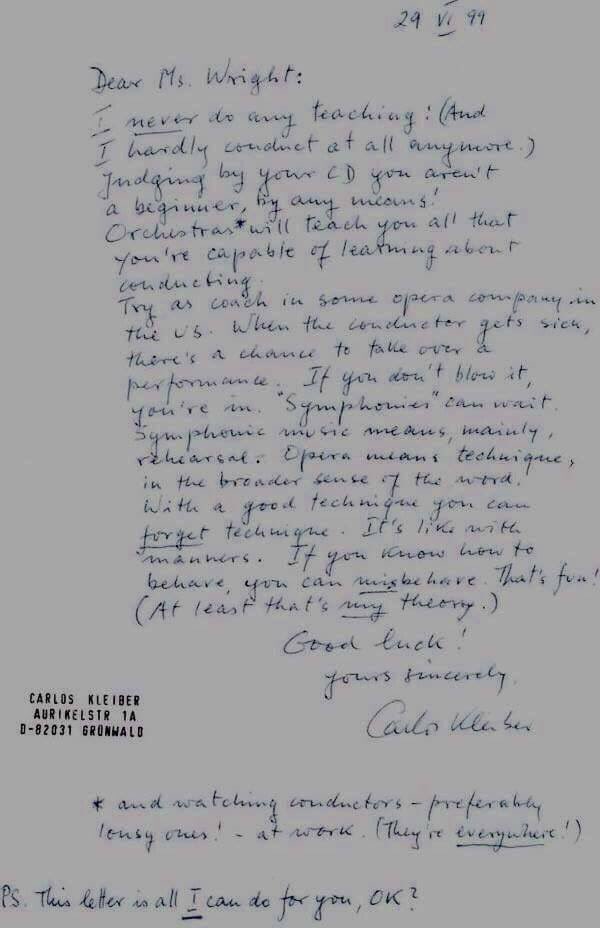 29 VI 99
Dear Ms. Wright:
I never do any teaching! (And
I hardly conduct at all anymore.)
Judging by your CD you aren't
a beginner, by any means!
Orchestras* will teach you all that
you're capable of learning about
conducting.
Try as coach in some opera company in
the US. When the conductor gets sick,
there's a chance to take over a
performance. If you don't blow it,
you're in. "Symphonies" can wait.
Symphonic music means, mainly,
rehearsal. Opera means technique,
in the broader sense of the word!
With a good technique you can
forget technique. It's like with
manners. If you know how to
behave, you can misbehave. That's fun!
(At least that's my theory.)
Good luck!
Yours sincerely,
Carlos Kleiber
CARLOS KLEIBER
AURIKELSTR 1A
D-82031 GRÜNWALD
* and watching conductors - preferably
lousy ones! - at work. (They're everywhere!)
PS. This letter is all I can do for you, OK?